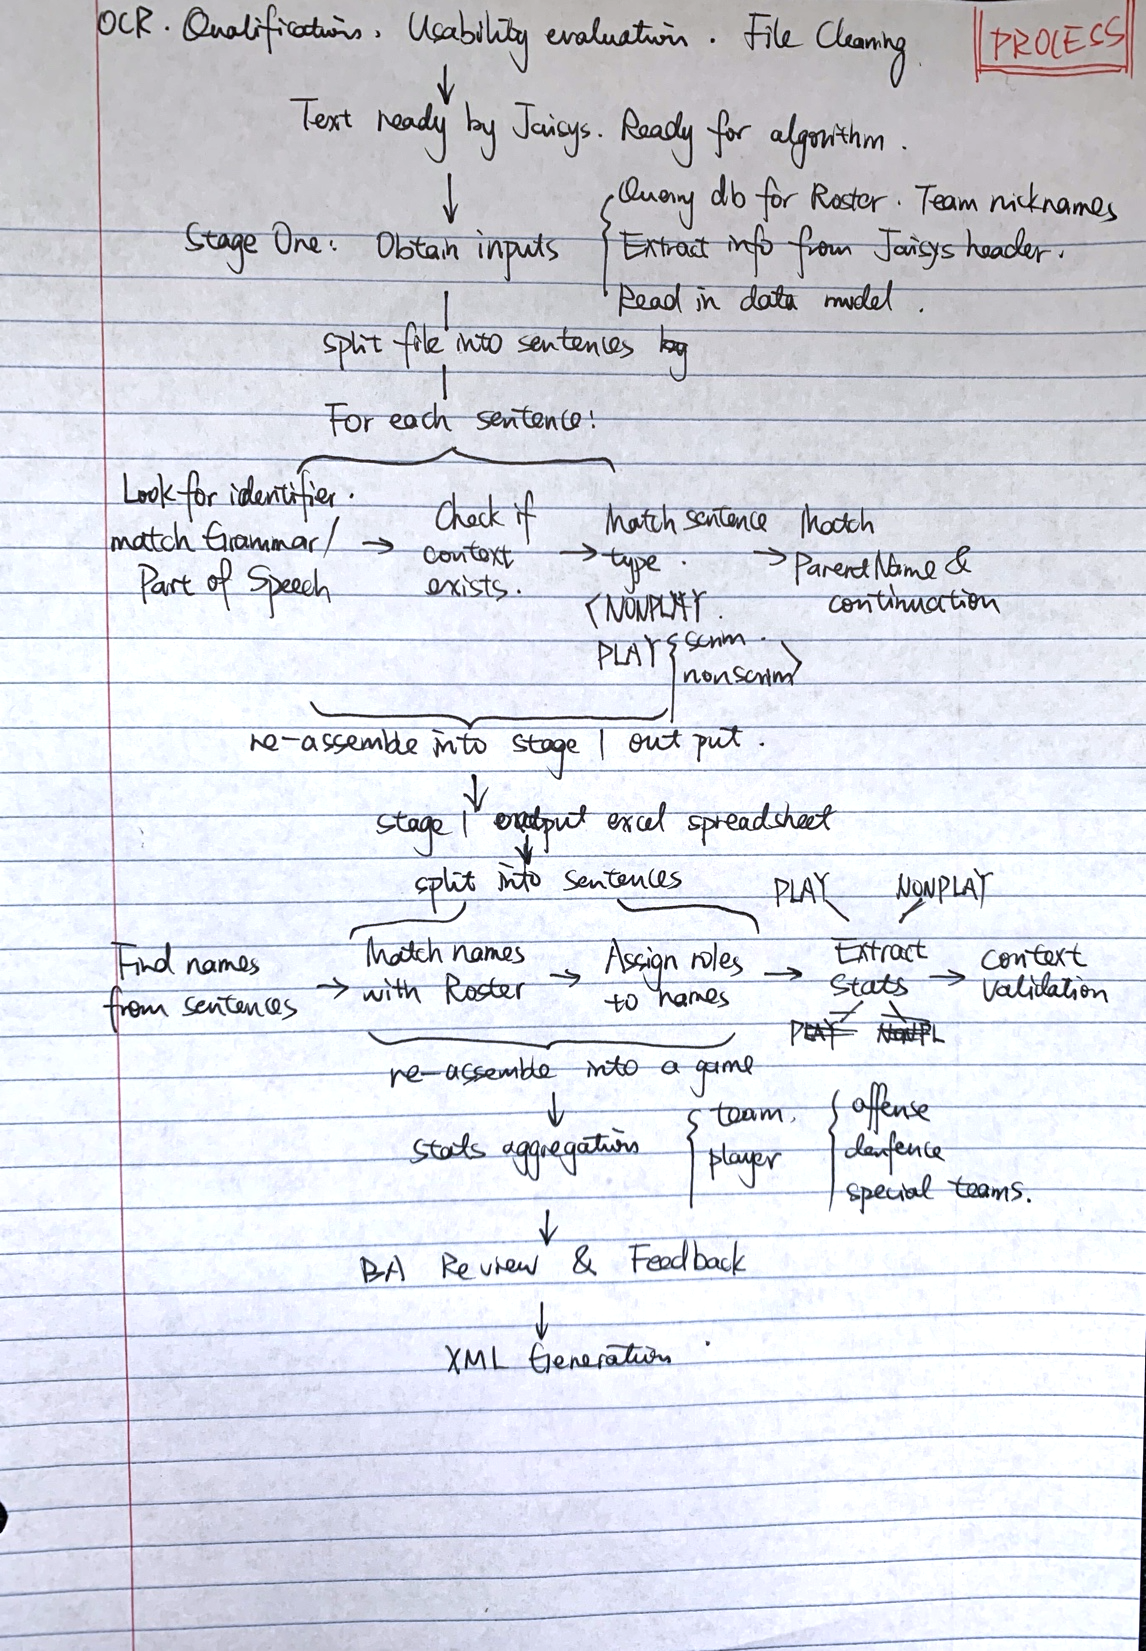 OCR. Qualifications, Usability evaluation. File Cleaning
PROCESS
Text ready by Jaisys. Ready for algorithm.
Stage One: Obtain inputs
Query db for Roster. Team nicknames
Extract info from Jaisys header.
Read in data model.
split file into sentences
For each sentence:
Look for identifier.
match Grammar/
Part of Speech
→ Check if
context
exists.
→ Match sentence
type.
<NONPLAY.
PLAY { scrim.
nonscrim>
→ Match
ParentName &
continuation
re-assemble into stage 1 output.
stage 1 output excel spreadsheet
split into sentences
PLAY NONPLAY
Find names
from sentences
→ Match names
with Roster
→ Assign roles
to names
→ Extract
Stats
→ context
validation
PLAY NONPL
re-assemble into a game
Stats aggregation
team,
player
offense
denfence
special teams.
BA Review & Feedback
XML Generation